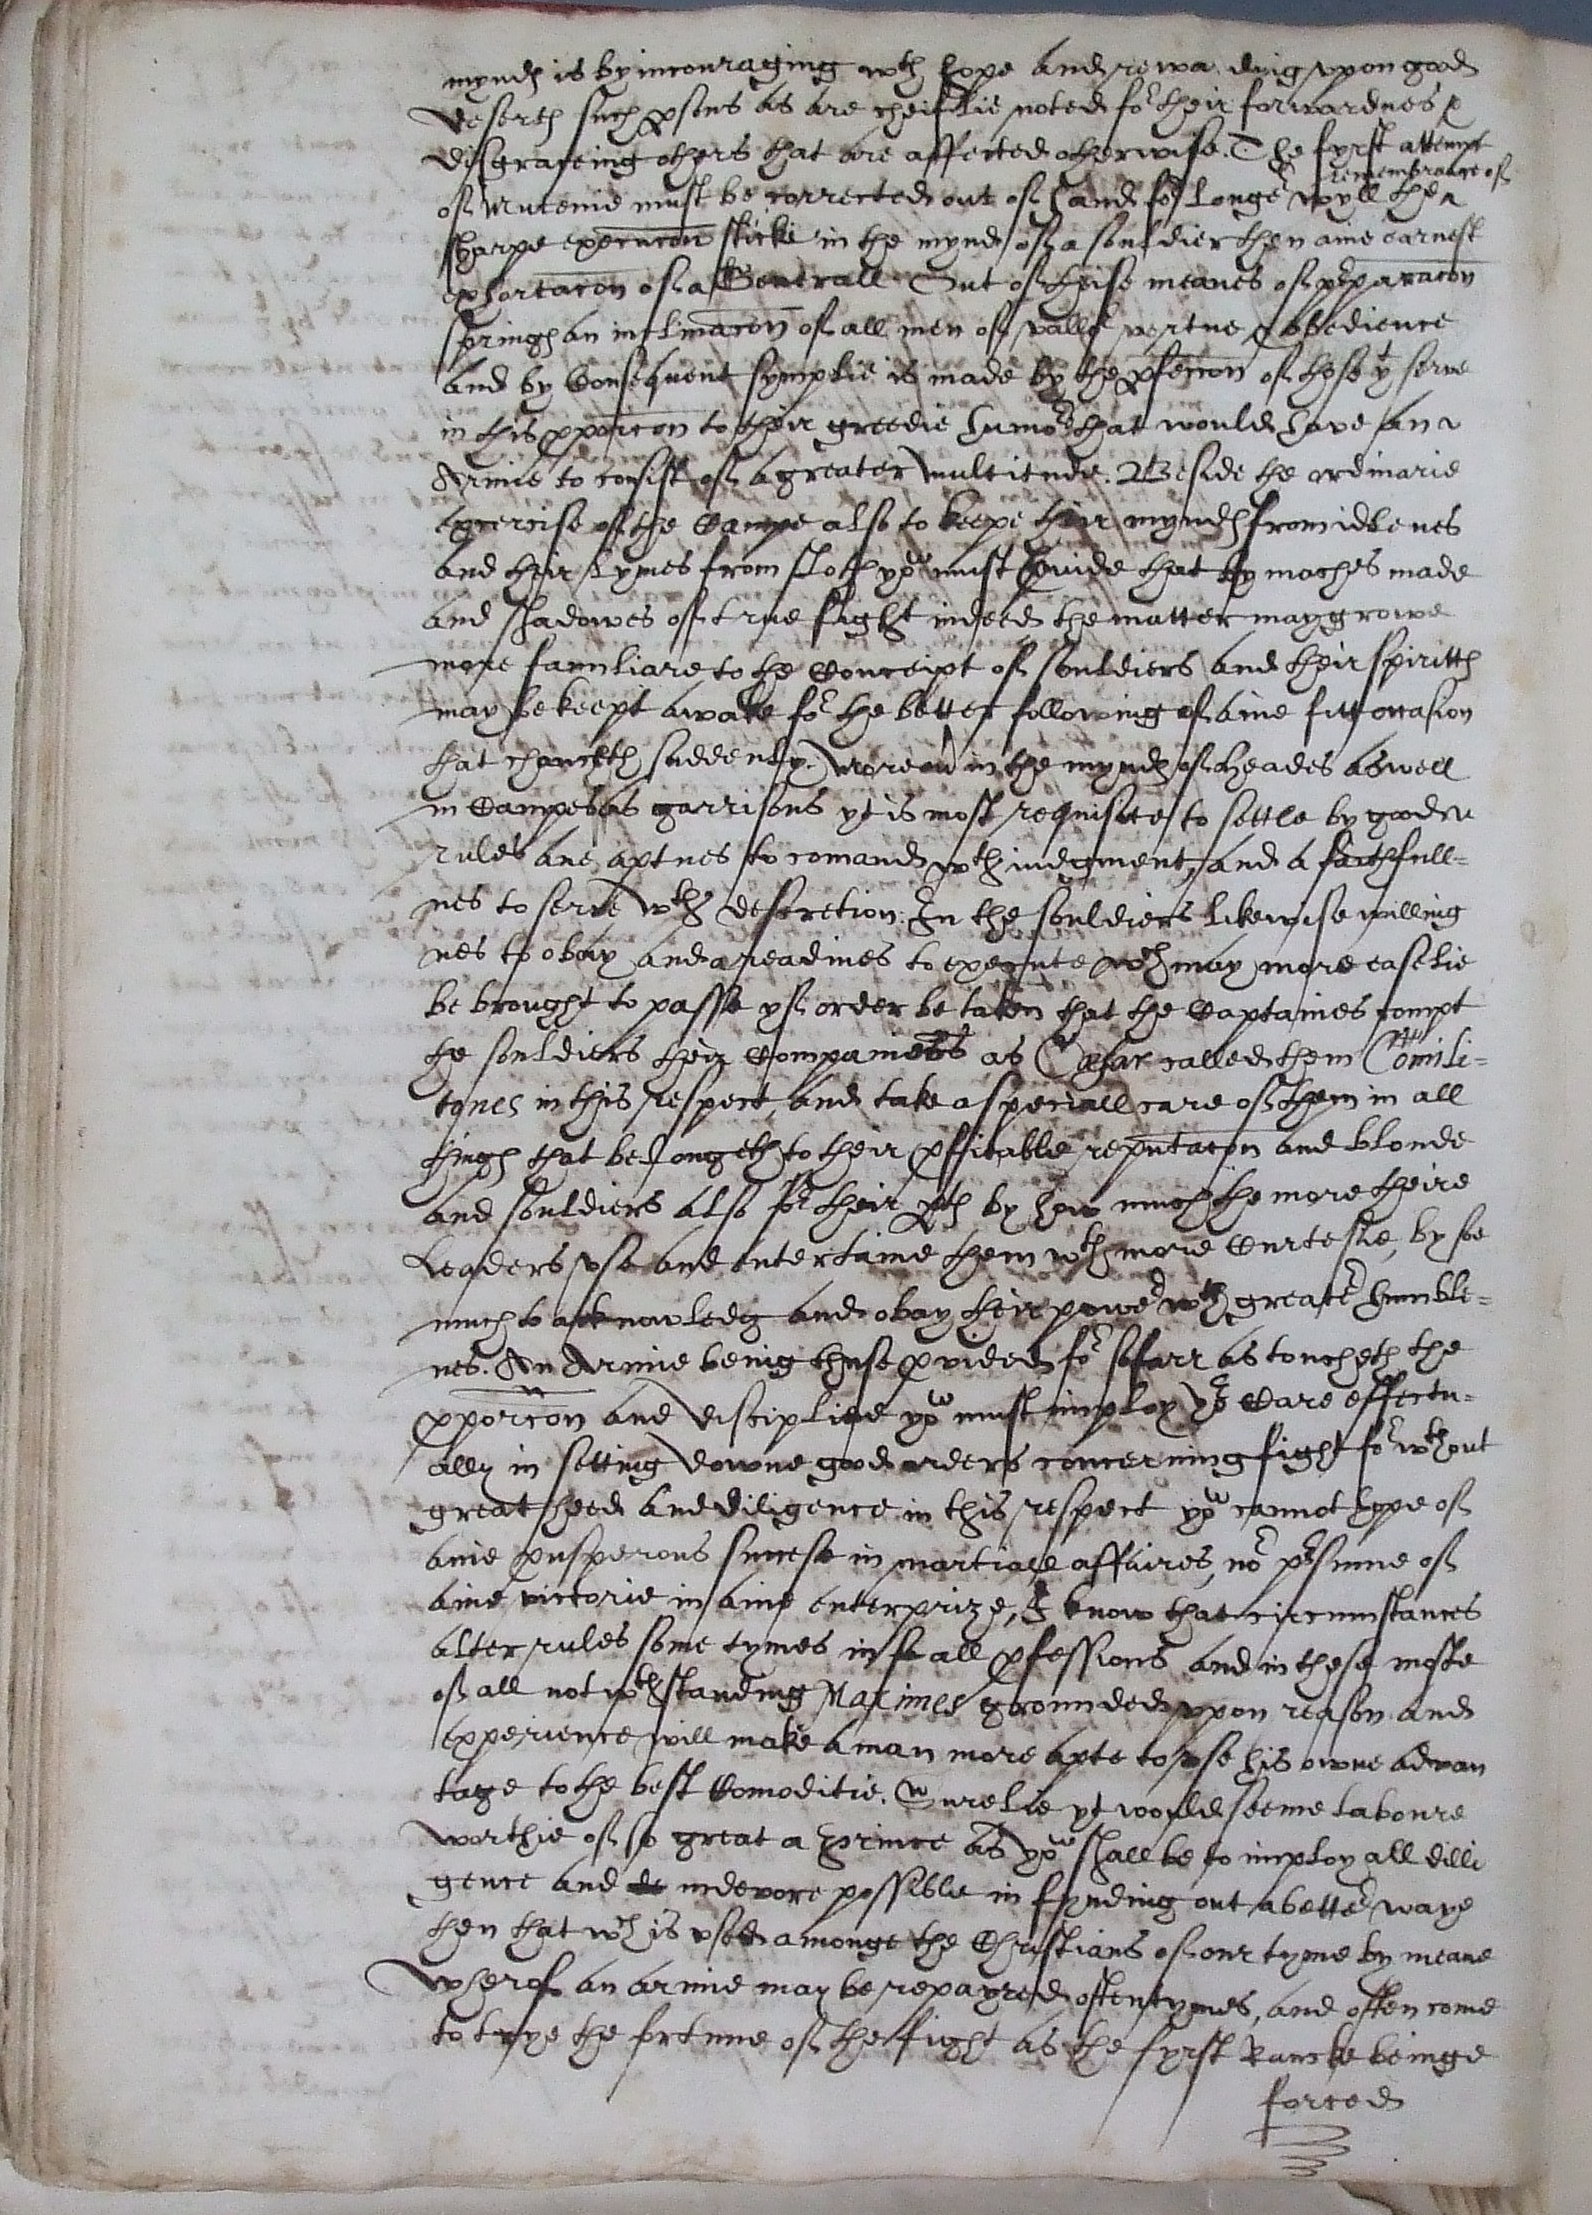 myndes is by incouraging wth hope and rewarding vpon good
desertes such psons as are cheiflie noted for their forwardnes &
disgraceing others that are affected otherwise. The fyrst attempt
of Mutenie must be corrected out of hand for longer wyll the ^ remembrance of
sharpe execucon sticke in the mynd of a souldier then anie earnest
exhortacon of a Generall. Out of theise meanes of pparacon
springes an inclinacon of all men of vallor vertue & obedience
and by Consequent symplie is made by the pfecon of those yt serve
in this pporcon to their greedie humors that would have an
Armie to consist of a greater multitude. Beside the ordinarie
exercise of the Campe also to keepe their myndes from idlenes
and their tymes from sloth yow must pvide that by maches made
and shadowes of true fight indeed the matter may growe
more familiare to the Conceipt of souldiers and their spirittes
may be keept awake for the better following of anie fitt occasion
that chanceth suddenly. Moreover in the myndes of heades aswell
in Campes as garrisons yt is most requisite to settle by good
rules ane aptnes to comand wth iudgment, and a faithfull=
nes to serve wth descretion. In the souldiers likewise willing
nes to obay and a readines to execute wch may more easelie
be brought to passe yf order be taken that the Captaines compt
the souldiers their Companiens as Cæsar called them Comili=
tones in this respect, and take a speciall care of them in all
thinges that belongeth to their pffitable reputacon and bloude
and souldiers also for their ptes by how much the more theire
Leaders vse and entertaine them wth more Curtesie, by soe
much to acknowledg and obay their power wth greater humble=
nes. An Armie being thuse pvided for sofarr as toucheth the
pporcon and discipline yow must imploy yor Care effectu=
ally in setting downe good orders concerning fight for wthout
great heed and diligence in this respect yow cannot hope of
anie prosperous successe in martiall affaires, nor presume of
anie victorie in anie enterprize, I know that circumstances
alter rules some tymes in all pfessions and in these moste
of all notwthstanding Maximes grounded vpon reason and
experience will make a man more apte to vse his owne advan
tage to the best Comoditie. Surelie yt would seeme laboure
worthie of so great a Prince as yow shall be to imploy all dilli
gence and indevore possible in fynding out a better waye
then that wch is vsed amonge the Christians of our tyme by meane
wherof an armie may be repayred oftentymes, and often come
to trye the fortune of the fight as the fyrst Rancke beinge
forced